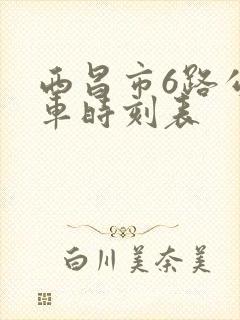 西昌市6路公
車時刻表
白川美奈美